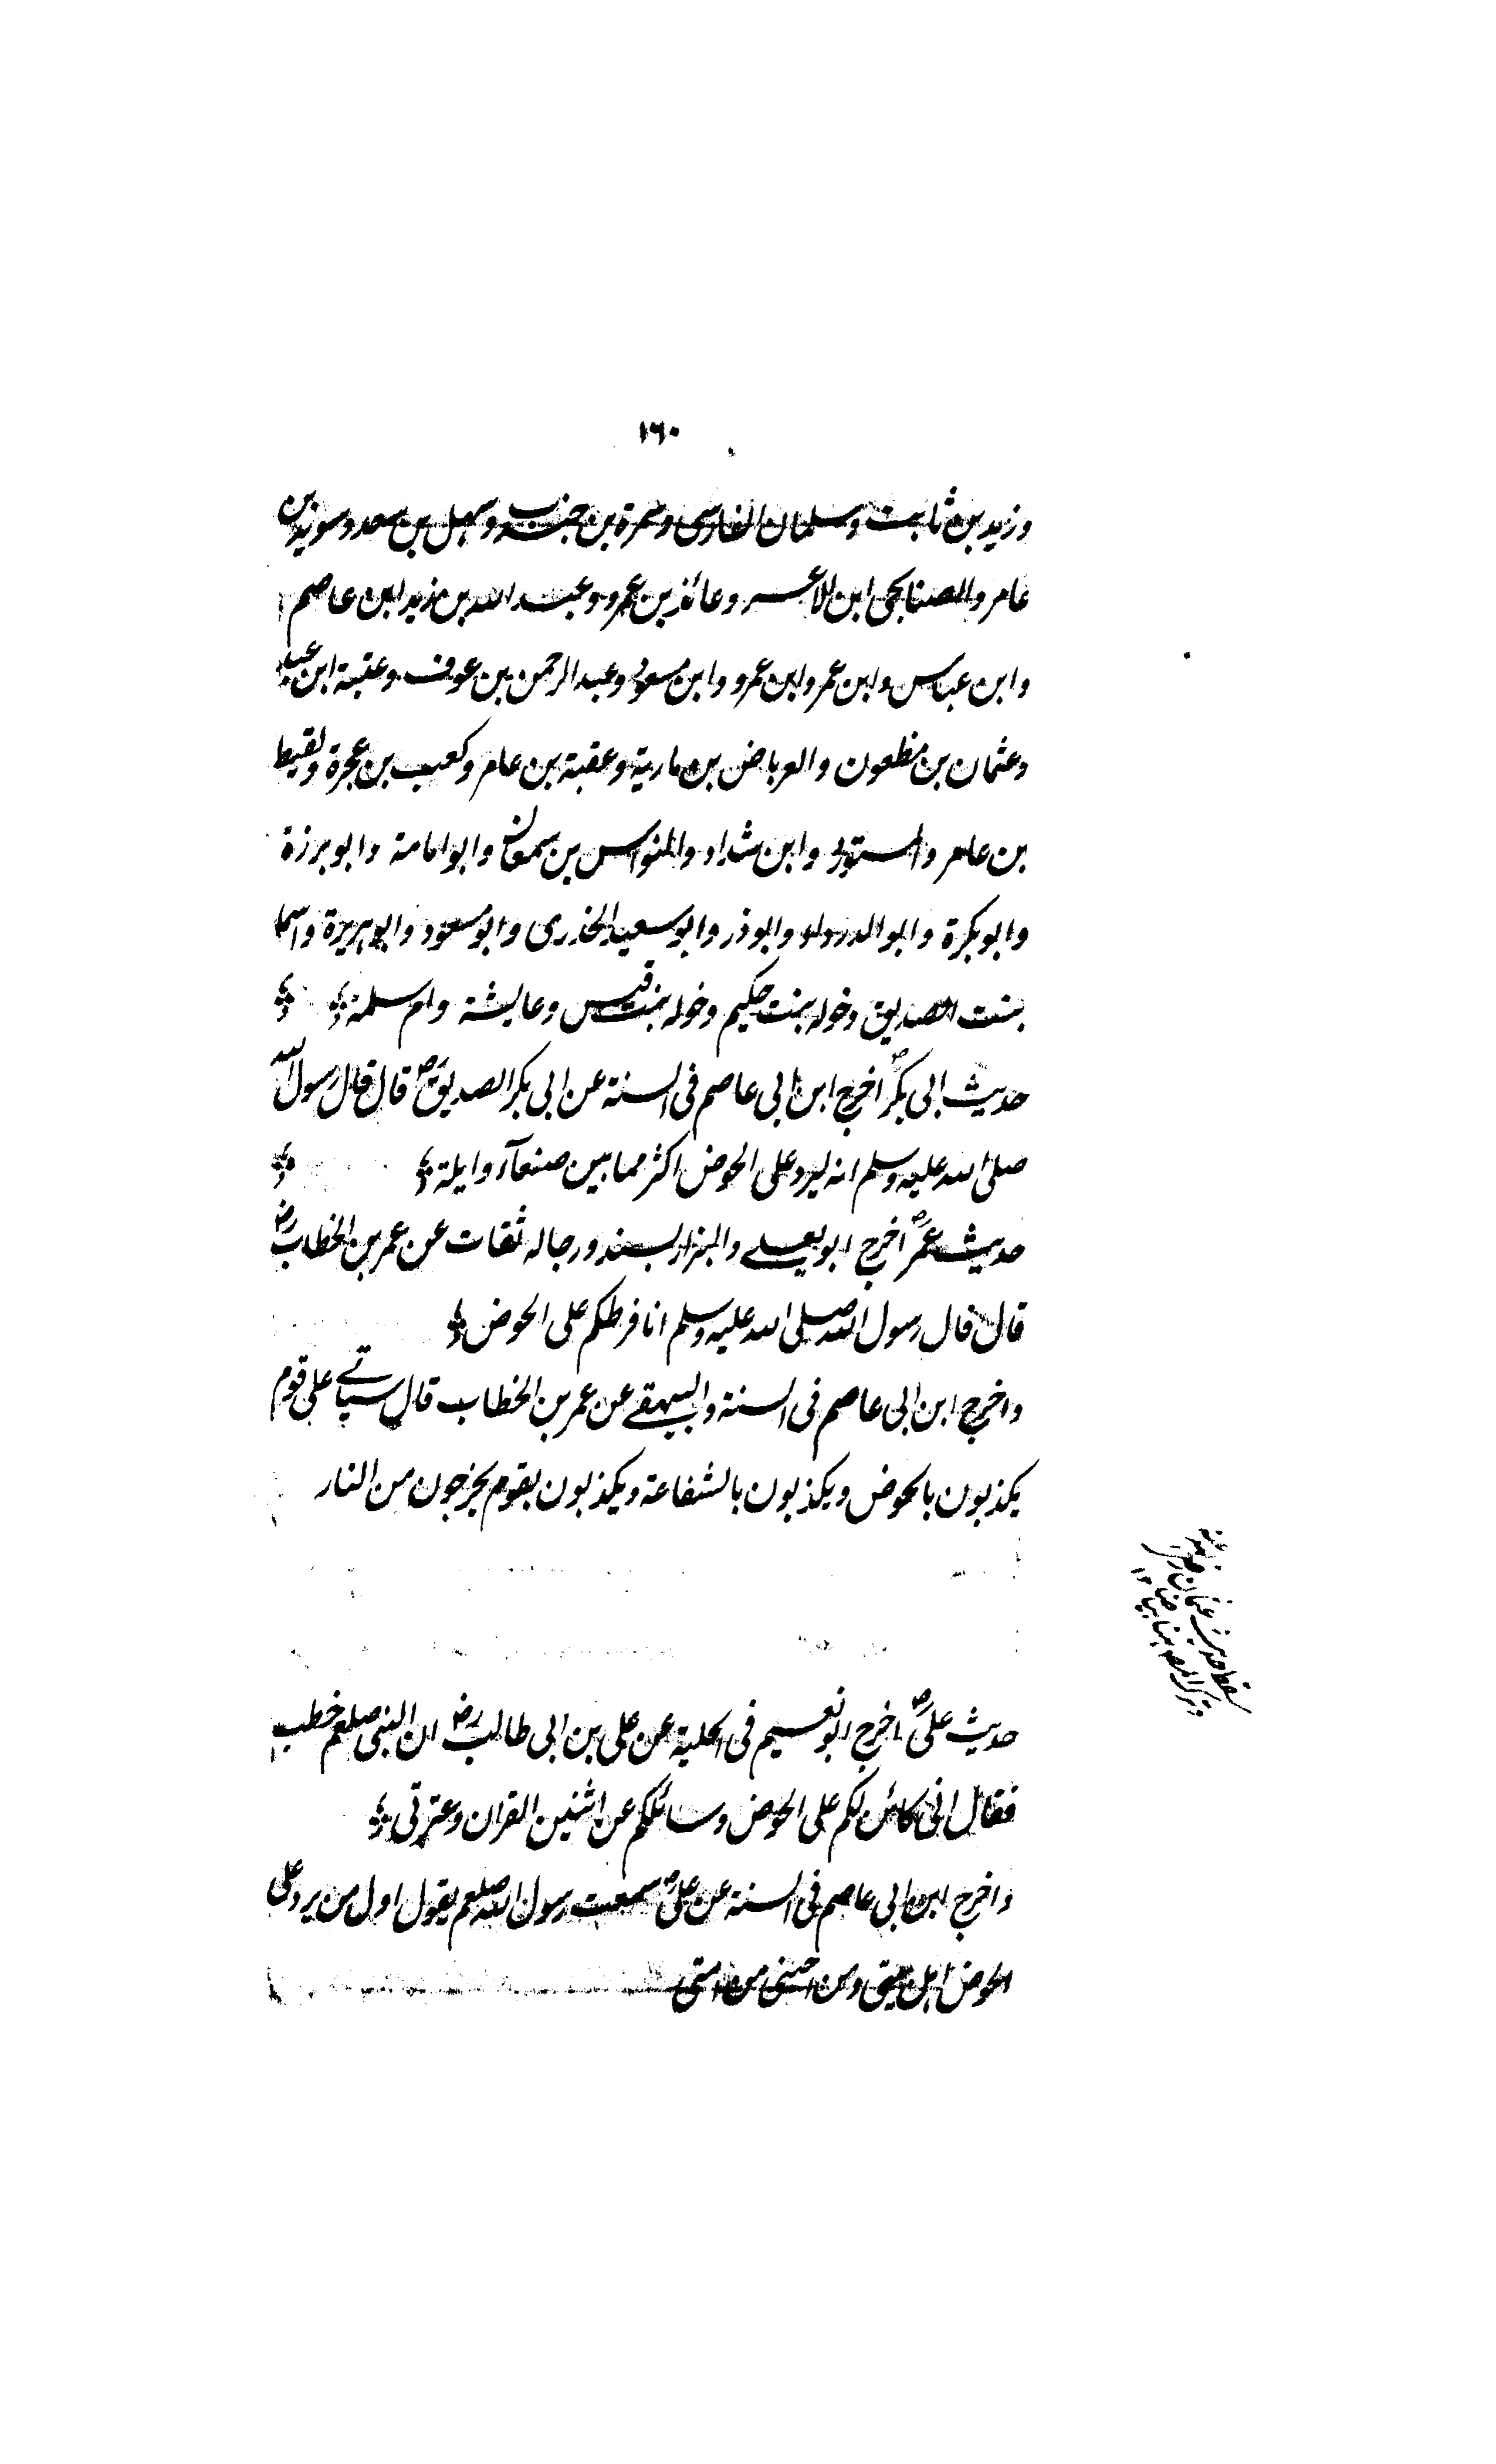 ١٦٠
وزيد بن ثابت وسلمان الفارسى وسمرة بن جندب وسهل بن سعد وسويد بن
عامر والصنابحى ابن الاعسر وعائذ بن عمرو وعبد الله بن زيد ابن عاصم
وابن عباس وابن عمر وابن عمرو وابن مسعود وعبد الرحمن بن عوف وعتبة ابن عبد
وعثمان بن مظعون والعرباض بن مارية وعقبة بن عامر وكعب بن عجرة ولقيط
بن عامر والمستورد وابن شداد والنواس بن سمعان وابو امامة وابو برزة
وابو بكرة وابو الدرداء وابو ذر وابو سعيد الخدرى وابو مسعود وابو هريرة واسما
بنت الصديق وخوله بنت حكيم وخوله بنت قيس وعايشة وام سلمة
حديث ابى بكرؓ اخرج ابن ابى عاصم فى السنة عن ابى بكر الصديقؓ قال قال رسول الله
صلى الله عليه وسلم انه ليرد على الحوض اكثر مما بين صنعآء وايلة
حديث عمرؓ اخرج ابو يعلى والبزار بسند ورجاله ثقات عن عمر بن الخطاب رض
قال قال رسول الله صلى الله عليه وسلم انا فرطكم على الحوض
واخرج ابن ابى عاصم فى السنة والبيهقے عن عمر بن الخطاب قال سياتے على قوم
يكذبون بالحوض ويكذبون بالشفاعة ويكذبون بقوم يخرجون من النار
سقط حديث عثمان
حديث علىؓ اخرج ابو نعيم فى الحلية عن على بن ابى طالب رض ان النبى صلعم خطب
فقال انى كائن لكم على الحوض وسائلكم عن اثنين القران وعترتى
واخرج ابن ابى عاصم فى السنة عن علىؓ سمعت رسول الله صلعم يقول اول من يرد على
الحوض اهل بيتى ومن احبنى من امتى